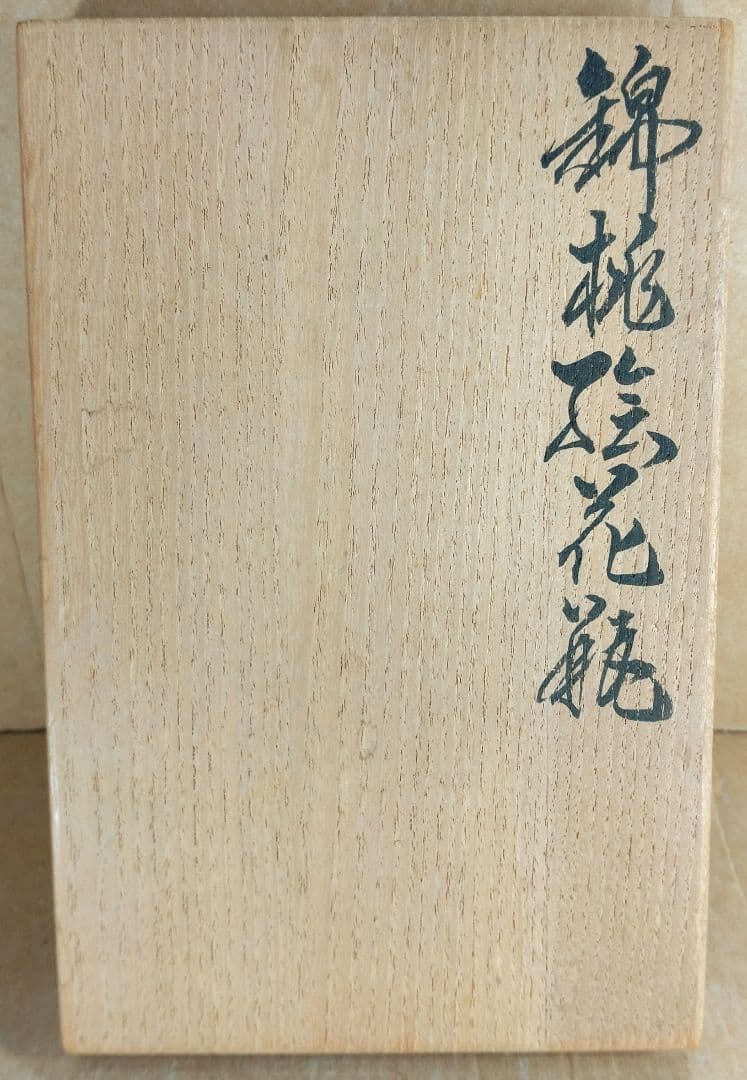 錦桃絵花瓶